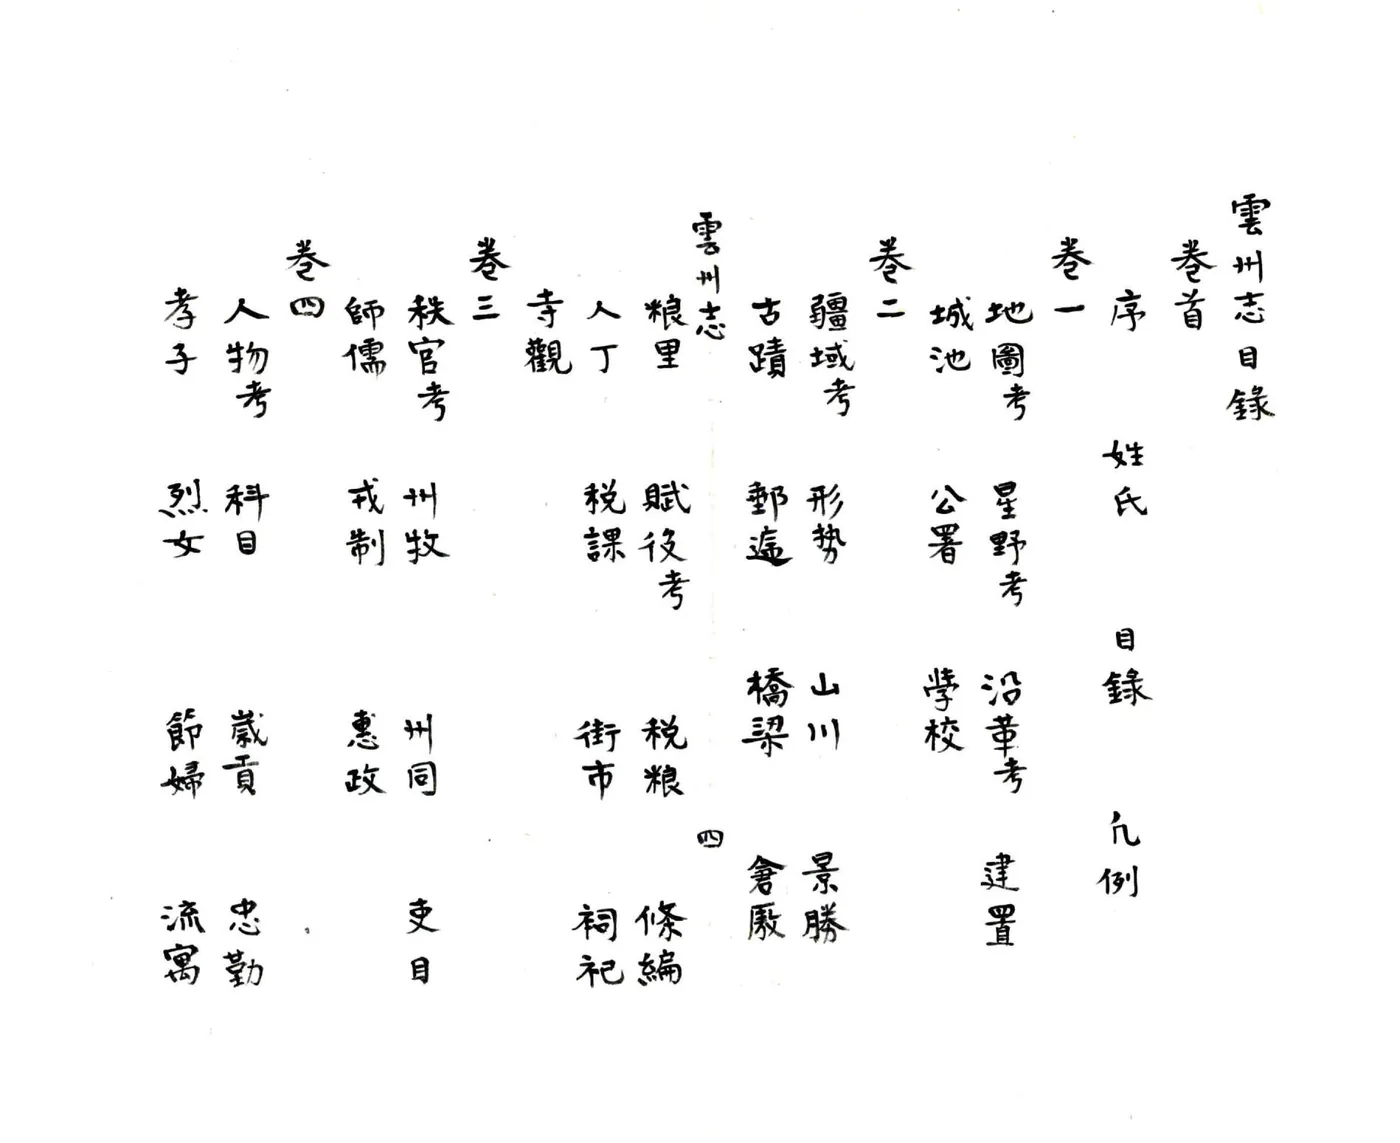 雲州志目錄
卷首
序 姓氏 目錄 凢例
卷一
地圖考 星野考 沿革考 建置
城池 公署 學校
卷二
疆域考 形势 山川 景勝
古蹟 郵遞 橋梁 倉厫
雲州志 四
粮里 賦役考 税粮 條編
人丁 税課 街市 祠祀
寺觀
卷三
秩官考 州牧 州同 吏目
師儒 戎制 惠政
卷四
人物考 科目 歲貢 忠勤
孝子 烈女 節婦 流寓